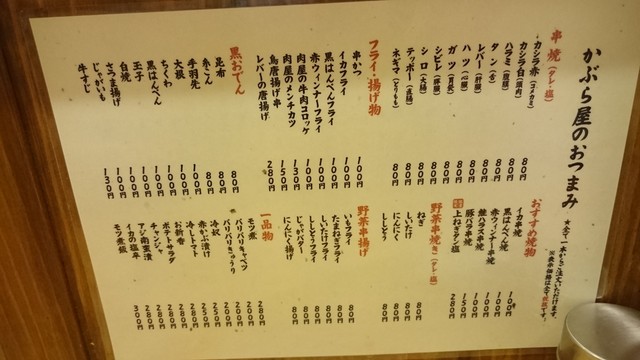 かぶら屋のおつまみ
★全て一本からご注文いただけます。
※表示価格は全て税抜です。
串焼(タレ・塩)
カシラ赤(コメカミ) 80円
カシラ白(頭肉) 80円
ハラミ(横隔膜) 80円
タン(舌) 80円
レバー(肝臓) 80円
ハツ(心臓) 80円
ガツ(胃袋) 80円
シビレ(膵臓) 80円
シロ(大腸) 80円
テッポー(直腸) 80円
ネギマ(とりもも) 80円
フライ・揚げ物
串かつ 100円
イカフライ 100円
黒はんぺんフライ 100円
赤ウィンナーフライ 100円
肉屋の牛肉コロッケ 130円
肉屋のメンチカツ 150円
鳥唐揚げ串 100円
レバーの唐揚げ 280円
黒おでん
昆布 80円
糸こん 80円
手羽先 80円
大根 100円
ちくわ 100円
黒はんぺん 100円
玉子 100円
白焼 100円
さつま揚げ 100円
じゃがいも 100円
牛すじ 130円
おすすめ焼物
イカ串焼 100円
黒はんぺん焼 100円
赤ウィンナー串焼 100円
鮭ハラス串焼 100円
豚バラ串焼 150円
上ねぎタン塩 280円
野菜串焼き(タレ・塩)
ねぎ 80円
しいたけ 80円
にんにく 80円
ししとう 80円
野菜串揚げ
いもフライ 80円
たまねぎフライ 80円
しいたけフライ 80円
ししとうフライ 80円
じゃがバター 80円
にんにく揚げ 80円
一品物
モツ煮 280円
バリバリキャベツ 200円
バリバリきゅうり 200円
冷奴 200円
赤かぶ漬け 250円
冷しトマト 250円
お新香 280円
ポテトサラダ 280円
チャンジャ 280円
アジ南蛮漬 280円
イカの塩辛 280円
モツ煮飯 300円